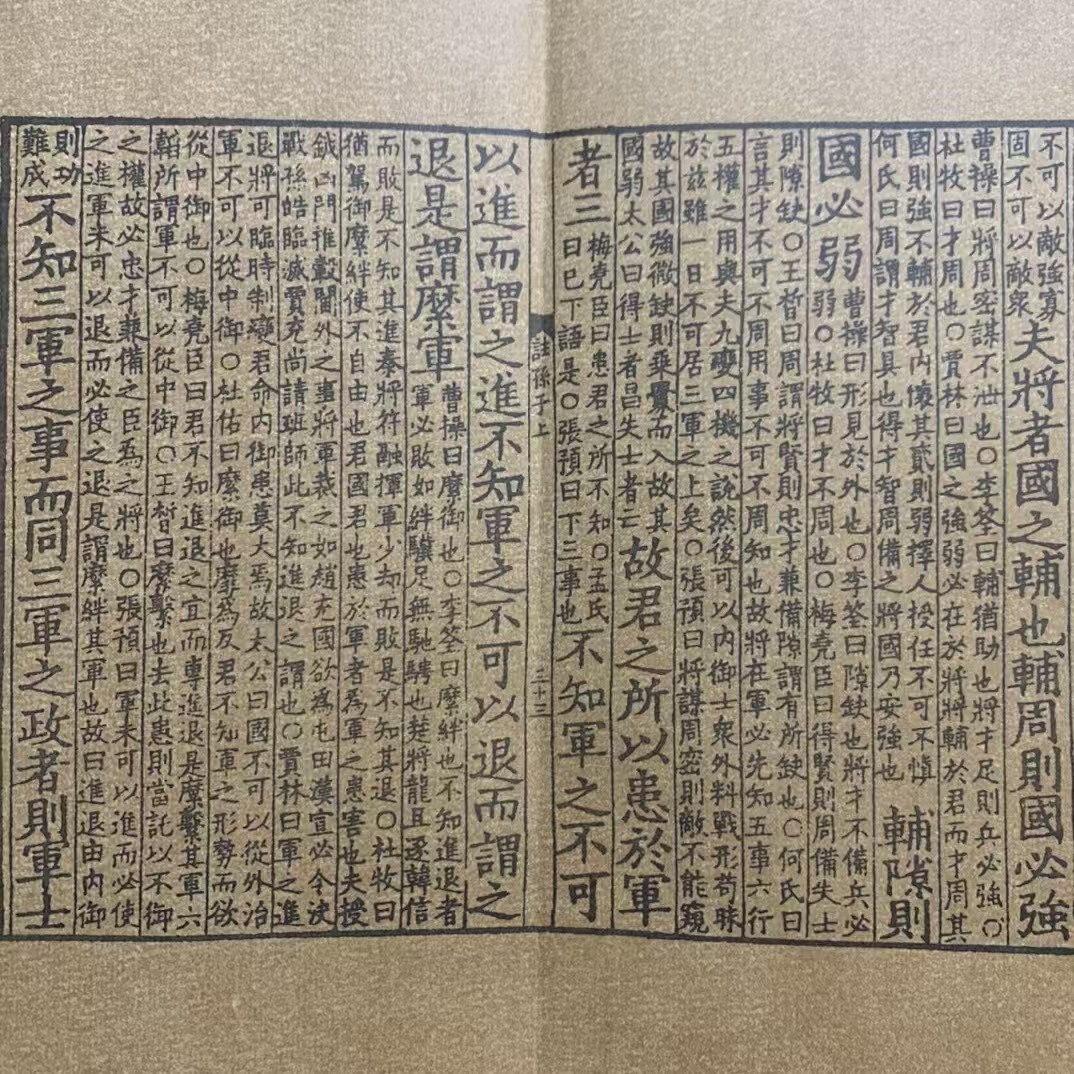 不可以敵強寡
固不可以敵衆
夫將者國之輔也輔周則國必強
曹操曰將周密謀不泄也○李筌曰輔猶助也將才足則兵必強○
杜牧曰才周也○賈林曰國之強弱必在於將將輔於君而才周其
國則強不輔於君內懷其貳則弱擇人授任不可不慎
何氏曰周謂才智具也得才智周備之將國乃安強也
輔隙則
國必弱
曹操曰形見於外也○李筌曰隙缺也將才不備兵必
弱○杜牧曰才不周也○梅堯臣曰得賢則周備失士
則隙缺○王晳曰周謂將賢則忠才兼備隙謂有所缺也○何氏曰
言其才不可不周用事不可不周知也故將在軍必先知五事六行
五權之用與夫九變四機之說然後可以內御士衆外料戰形苟昧
於茲雖一日不可居三軍之上矣○張預曰將謀周密則敵不能窺
故其國強微缺則乘釁而入故其
國弱太公曰得士者昌失士者亡
故君之所以患於軍
者三
梅堯臣曰患君之所不知○孟氏
曰已下語是○張預曰下三事也
不知軍之不可
註孫子上
三十三
以進而謂之進不知軍之不可以退而謂之
退是謂縻軍
曹操曰縻御也○李筌曰縻絆也不知進退者
軍必敗如絆驥足無馳騁也楚將龍且逐韓信
而敗是不知其進秦將苻融揮軍少却而敗是不知其退○杜牧曰
猶駕御縻絆使不自由也君國君也患於軍者為軍之患害也夫授
鉞凶門推轂閫外之事將軍裁之如趙充國欲為屯田漢宣必令決
戰孫皓臨滅賈充尚請班師此不知進退之謂也○賈林曰軍之進
退將可臨時制變君命內御患莫大焉故太公曰國不可以從外治
軍不可以從中御○杜佑曰縻御也靡為反君不知軍之形勢而欲
從中御也○梅堯臣曰君不知進退之宜而專進退是縻繫其軍六
韜所謂軍不可以從中御○王晳曰縻繫也去此患則當託以不御
之權故必忠才兼備之臣為之將也○張預曰軍未可以進而必使
之進軍未可以退而必使之退是謂縻絆其軍也故曰進退由內御
則功
難成
不知三軍之事而同三軍之政者則軍士